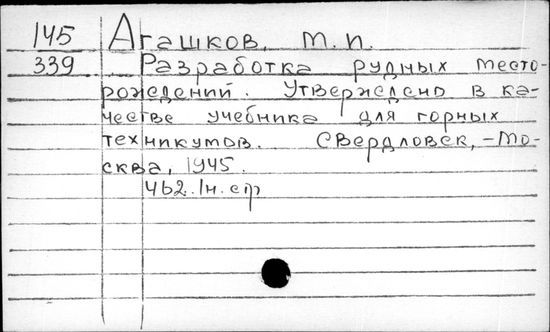 145 Агашков, М. П.
339 Разработка рудных место-
рождений. Утверждено в ка-
честве учебника для горных
техникумов. Свердловск, -Мо-
сква, 1945.
462. 1н. стр